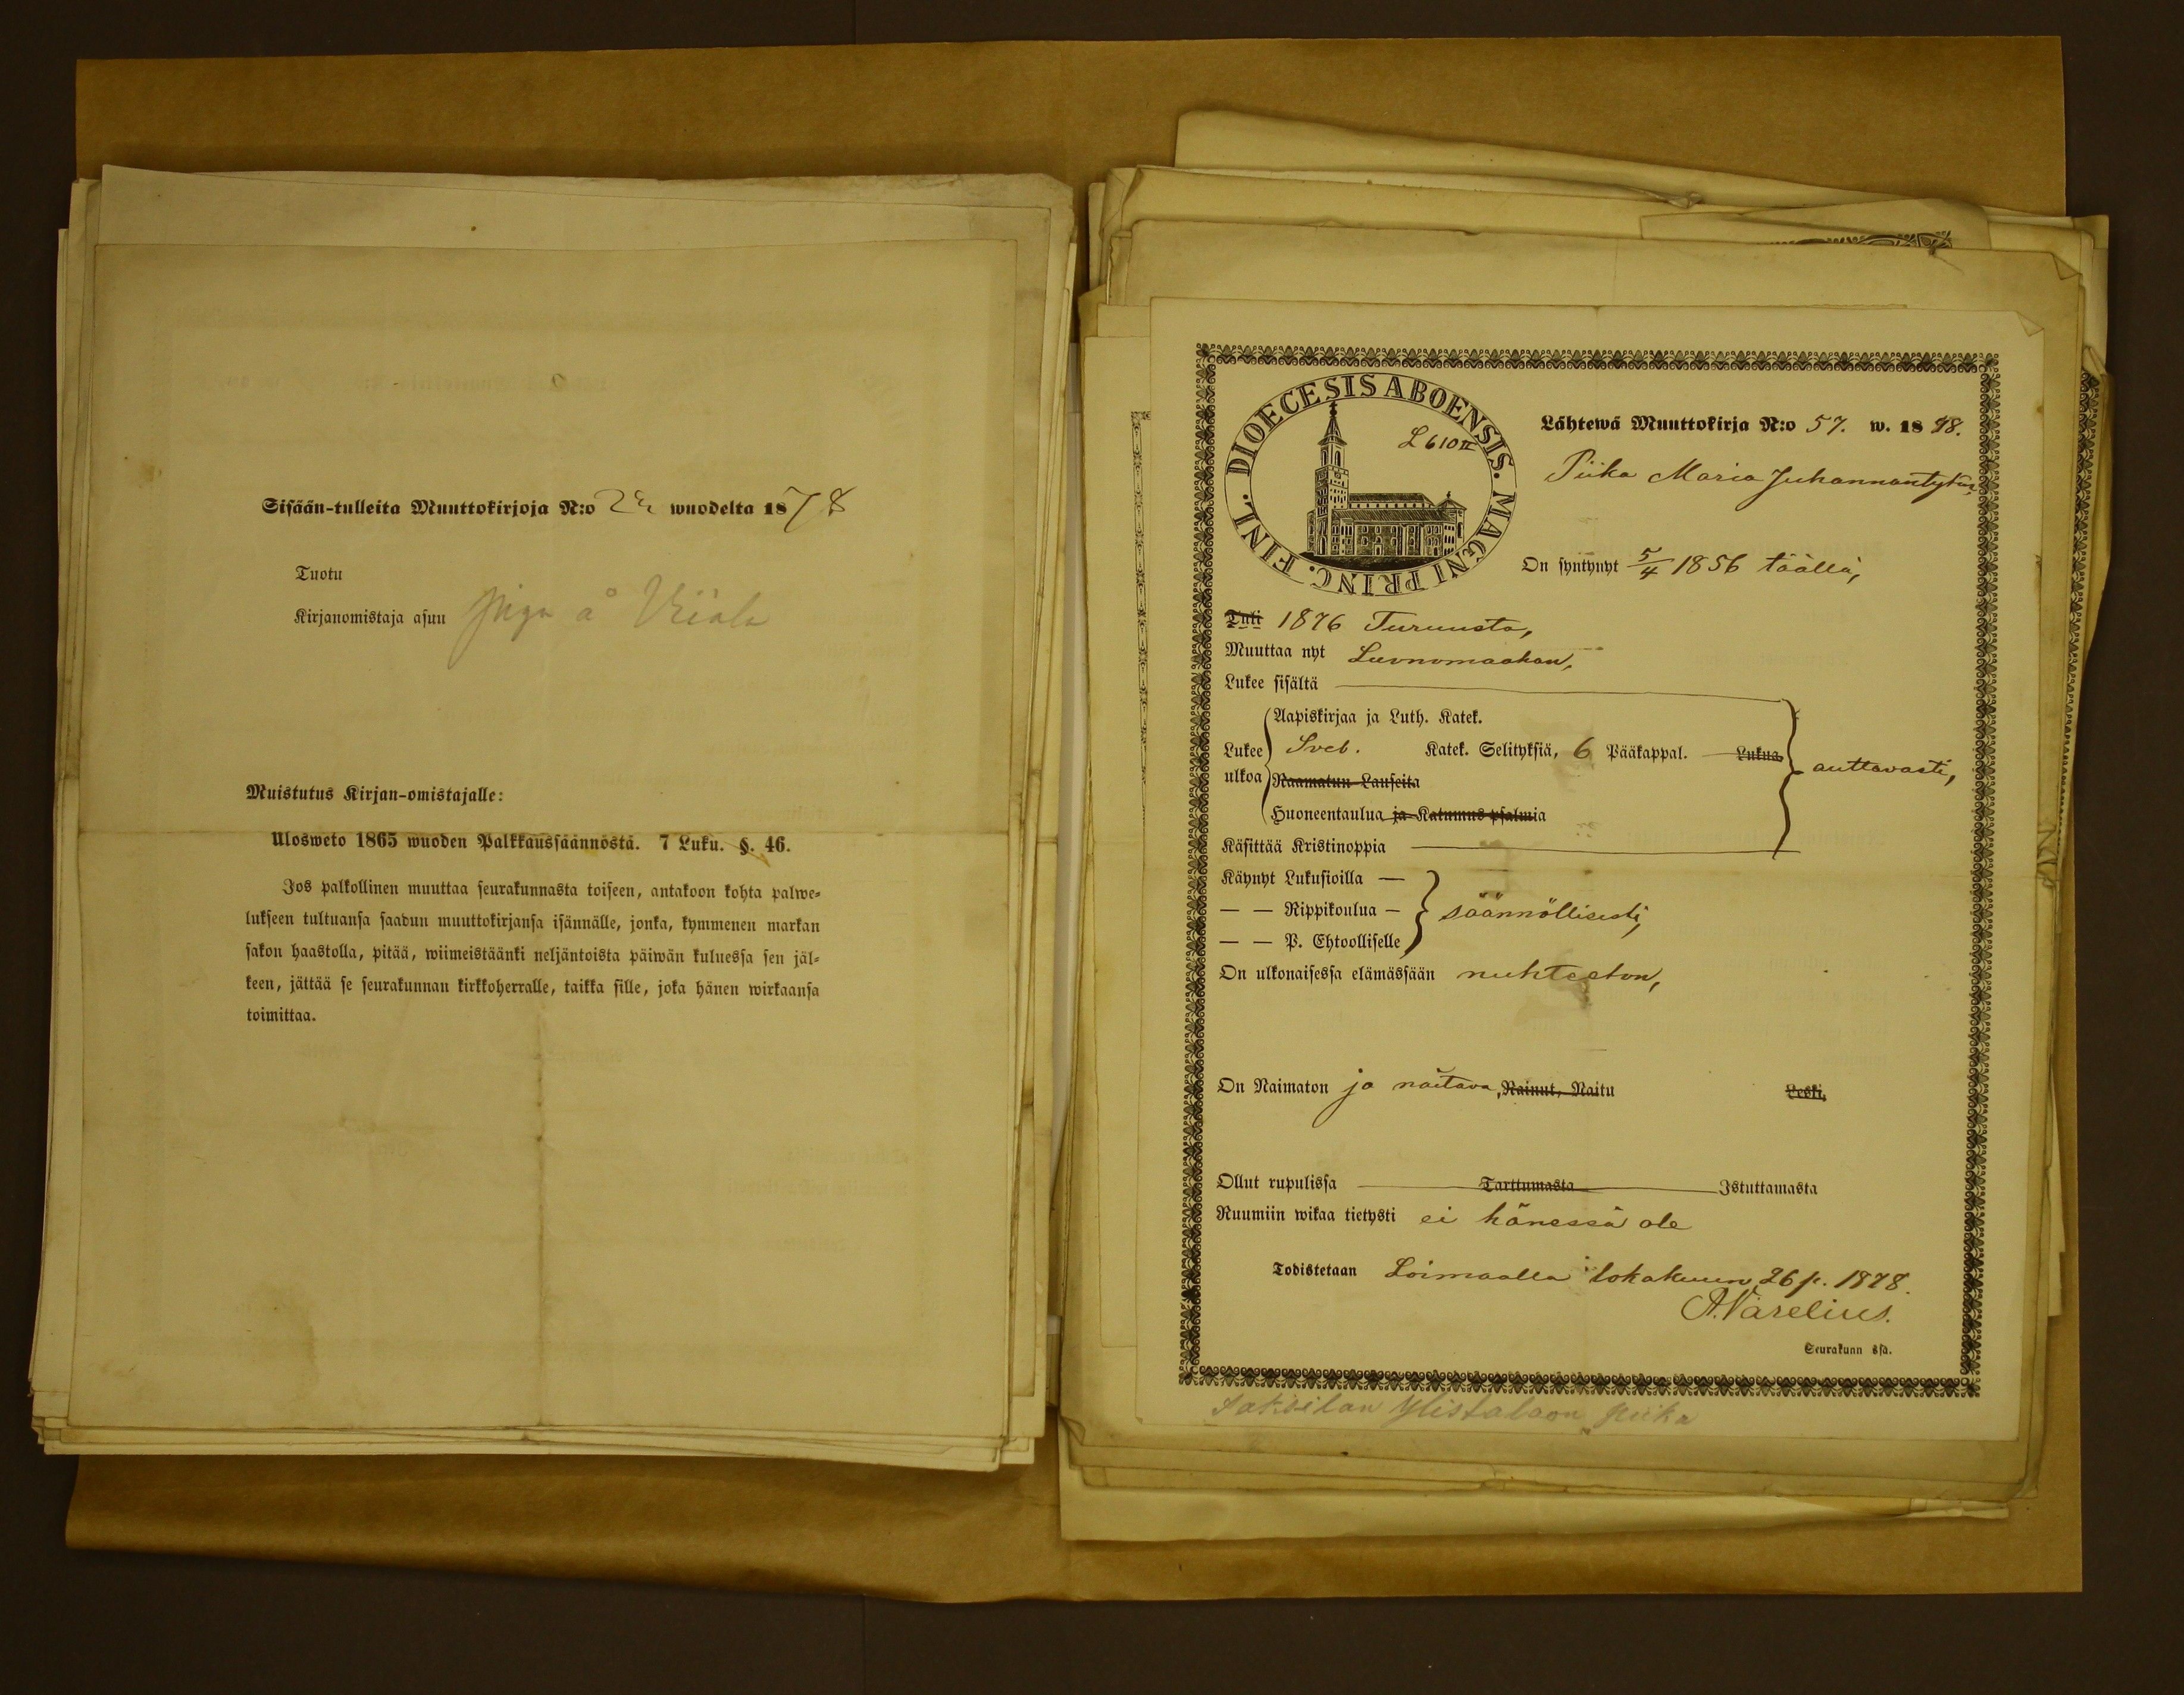 Sisään-tulleita Muuttokirjoja N:o wuodelta 1878
Tuotu
Kirjanomistaja asuu Piga å Viiala
Muistutus Kirjan-omistajalle:
Ulosweto 1865 wuoden Palkkaussäännöstä. 7 Luku. §. 46.
Jos palkollinen muuttaa seurakunnasta toiseen, antakoon kohta palwe-
lukseen tultuansa saadun muuttokirjansa isännälle, jonka, kymmenen markan
sakon haastolla, pitää, wiimeistäänki neljäntoista päiwän kuluessa sen jäl-
keen, jättää se seurakunnan kirkkoherralle, taikka sille, joka hänen wirkaansa
toimittaa.
DIOECESIS ABOENSIS. MAGNI PRINC. FINL.
L 610 II
Lähtewä Muuttokirja N:o 57. w. 1878.
Piika Maria Juhannantytär,
On syntynyt 5/4 1856 täällä,
Tuli 1876 Turuusta,
Muuttaa nyt
Lukee sisältä
Aapiskirjaa ja Luth. Katek.
Lukee ulkoa Sveb. Katek. Selityksiä, 6 Pääkappal. Lukua auttavasti,
Raamatun Lauseita
Huoneentaulua ja Katumus psalmia
Käsittää Kristinoppia
Käynyt Lukusioilla —
— — Rippikoulua — säännöllisesti,
— — P. Ehtoolliselle
On ulkonaisessa elämässään nuhteeton,
On Naimaton ja naitava, Nainut, Naitu Leski,
Ollut rupulissa Tarttumasta Istuttamasta
Ruumiin wikaa tietysti ei hänessä ole
Todistetaan Loimaalla lokakuun 26 p. 1878.
A. Varelius.
Seurakunn ssa.
Ylistaloon piika